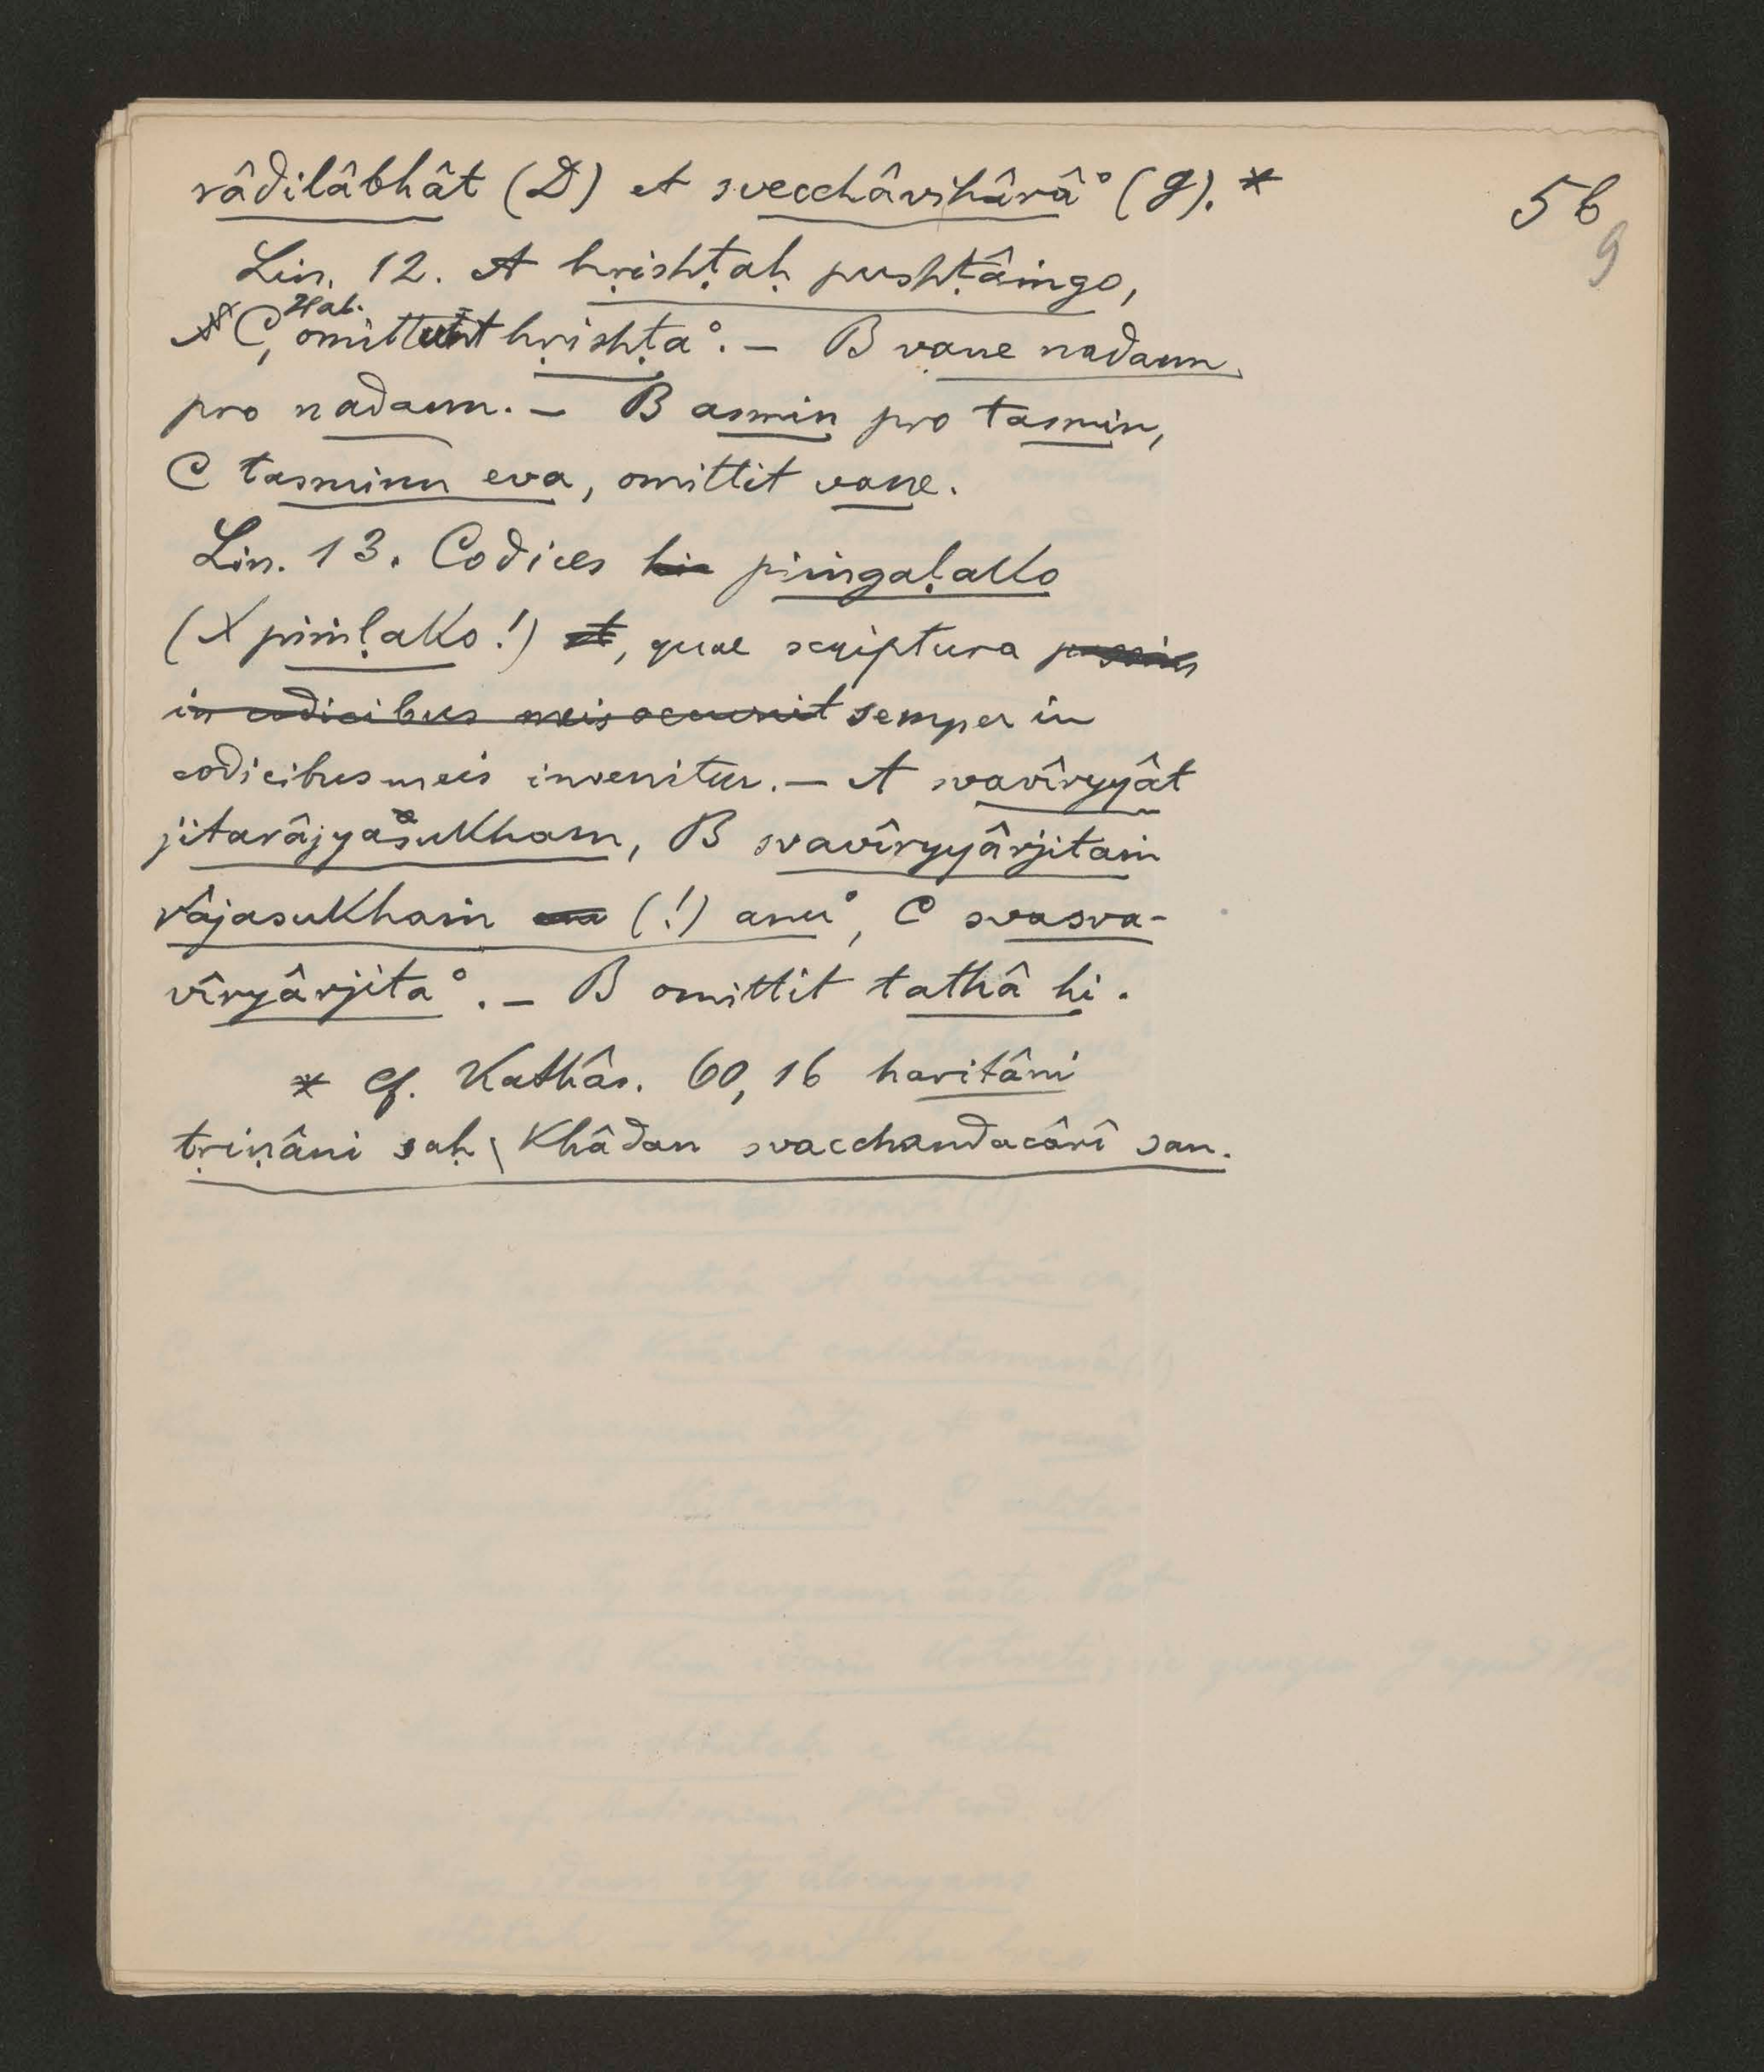 râdilâbhât (D) et svecchâvihârâ° (g). *
56
9
Lin. 12. A hṛishṭaḥ pushṭâṁgo,
N C, Hal. omittunt hṛishṭa°. – B vane nadann
pro nadann. – B asmin pro tasmin,
C tasminn eva, omittit vane.
Lin. 13. Codices hic piṁgaḷako
(X piṁḷako!) et, quae scriptura passim
in codicibus meis occurrit semper in
codicibus meis invenitur. – A svavîryyât
jitarâjyasukham, B svavîryyârjitaṁ
râjasukhaṁ (!) anu°, C svasva-
vîryârjita°. – B omittit tathâ hi.
* cf. Kathâs. 60, 16 haritâni
tṛiṇâni saḥ \ khâdan svacchandacârî san.